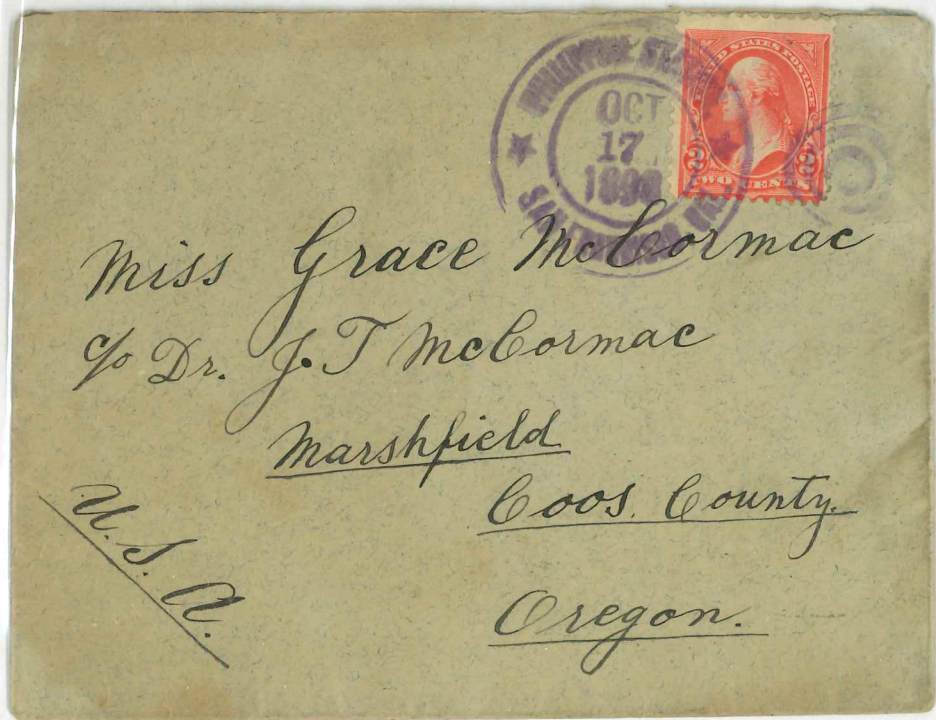 PHILIPPINE STATION
OCT
17
189
SAN FRANCISCO
UNITED STATES POSTAGE
2 2
TWO CENTS
Miss Grace McCormac
c/o Dr. J. T McCormac
Marshfield
Coos. County.
Oregon.
U. S. A.